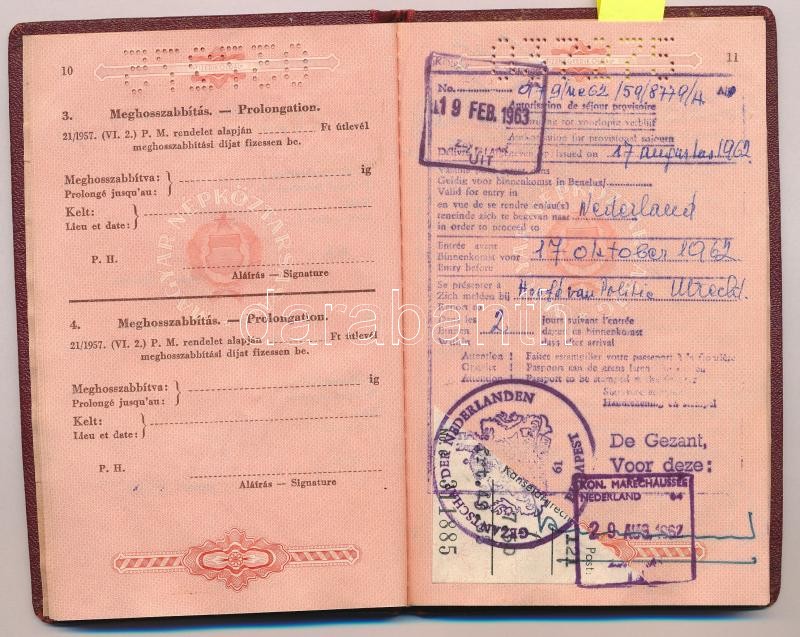 10
3. Meghosszabbítás. — Prolongation.
21/1957. (VI. 2.) P. M. rendelet alapján ............ Ft útlevél
meghosszabbítási díjat fizessen be.
Meghosszabbítva: ig
Prolongé jusqu'au:
Kelt:
Lieu et date:
P. H.
Aláírás — Signature
4. Meghosszabbítás. — Prolongation.
21/1957. (VI. 2.) P. M. rendelet alapján ............ Ft útlevél
meghosszabbítási díjat fizessen be.
Meghosszabbítva: ig
Prolongé jusqu'au:
Kelt:
Lieu et date:
P. H.
Aláírás — Signature
MAGYAR NÉPKÖZTÁRS
darabanth
11
No.
19 FEB. 1963
UIT
Autorisation de séjour provisoire
voorlopig verblijf
Authorisation for provisional sojourn
issued on 17 augustus 1962
Geldig voor binnenkomst in Benelux/
Valid for entry in
en vue de se rendre en/au(x)
teneinde zich te begeven naar Nederland
in order to proceed to
Entrée avant
Binnenkomst voor 17 oktober 1962
Entry before
Se présenter à
Zich melden bij Hoofd van Politie Utrecht.
les 2 jours suivant l'entrée
Binnen dagen na binnenkomst
days after arrival
Attention ! Faites estampiller votre passeport à la frontière
Attention ! Passport to be stamped at the frontier
De Gezant,
Voor deze:
GEZANTSCHAP DER NEDERLANDEN
BOEDAPEST
19
KON. MARECHAUSSEE
NEDERLAND 64
29 AUG. 1962